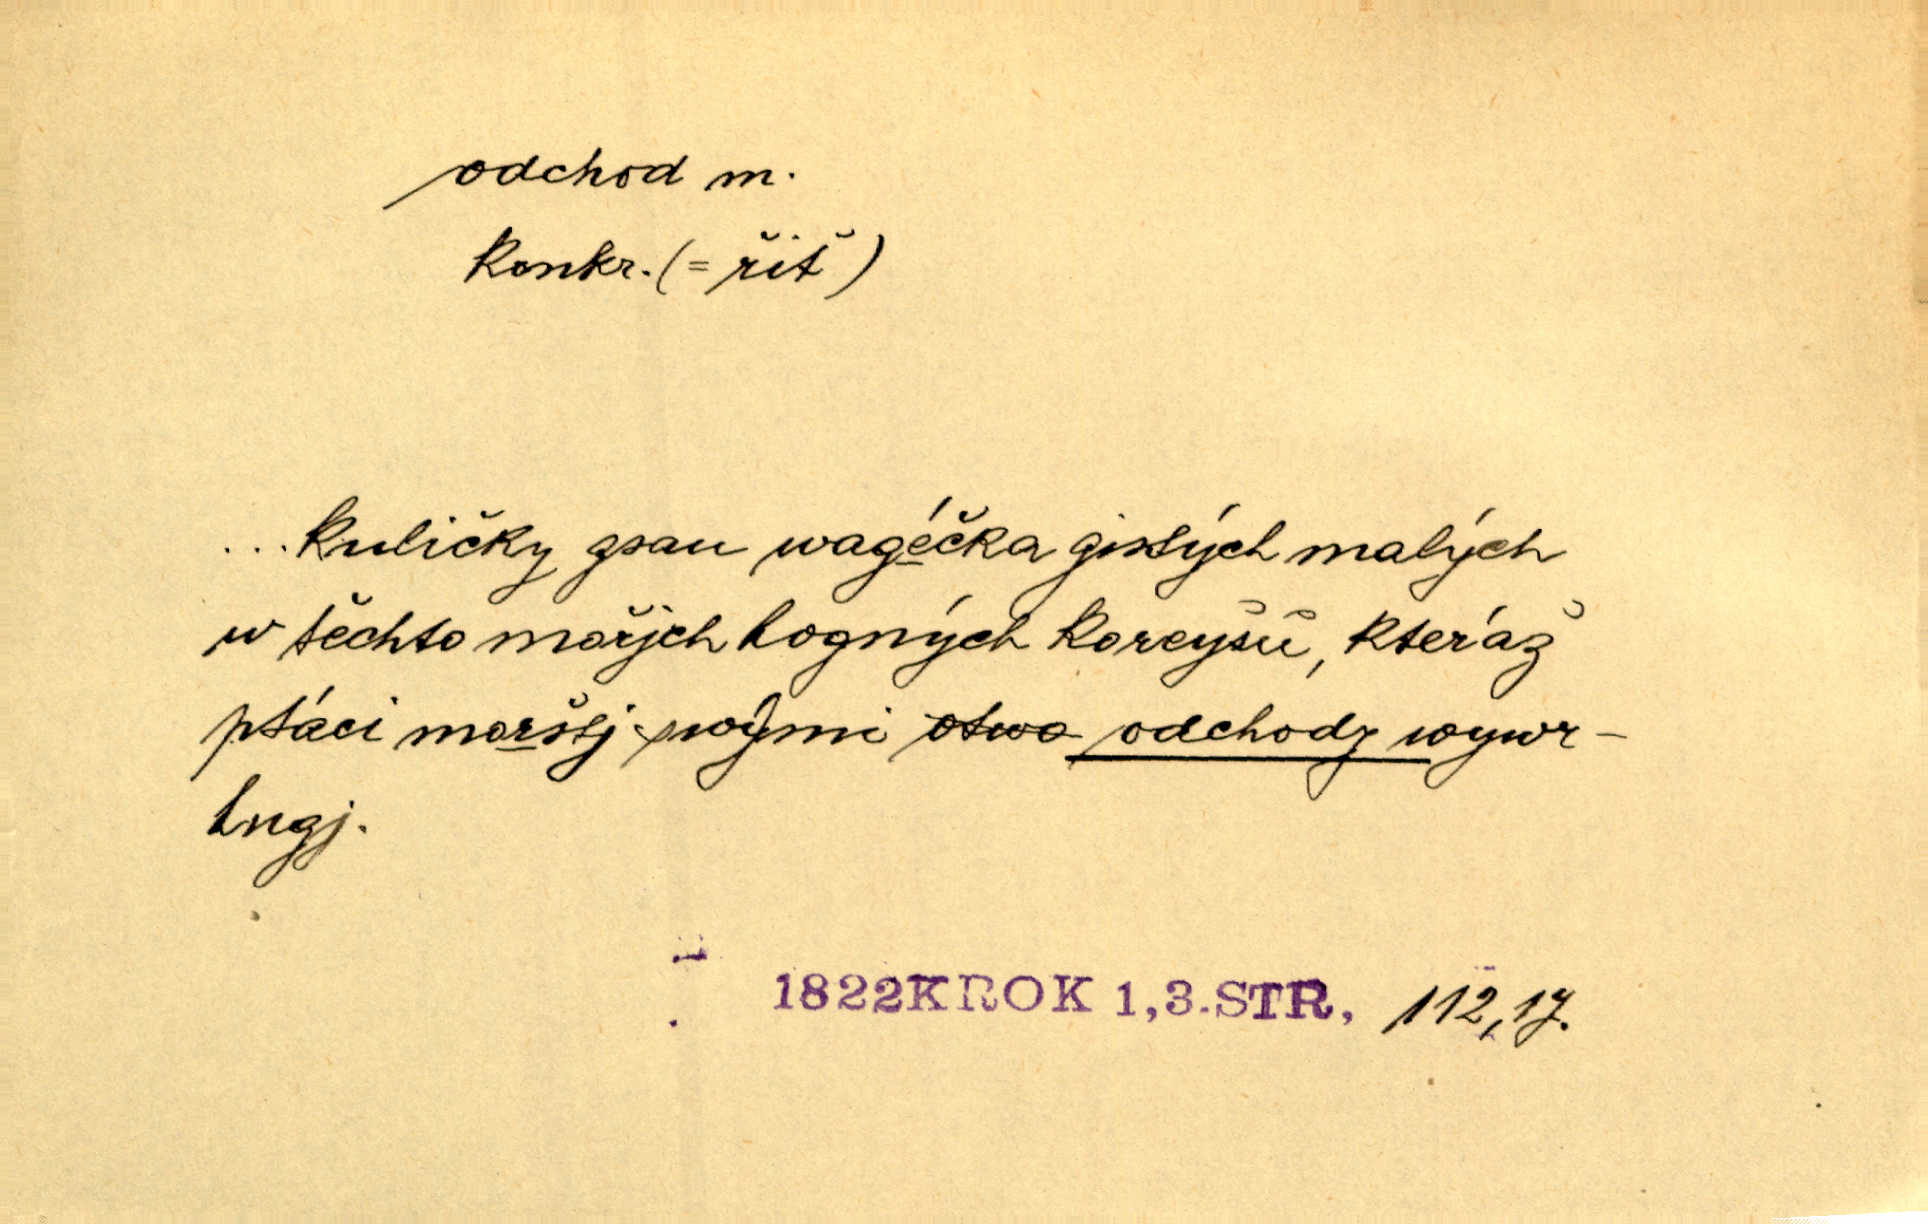 odchod m.
konkr. (= řiť)
... kuličky gsau wagéčka gistých malých
w těchto mořjch hogných koreyšů, kteráž
ptáci moršstj swými otwo odchody wywr-
hugj.
1822KROK 1,3.STR, 112,17.